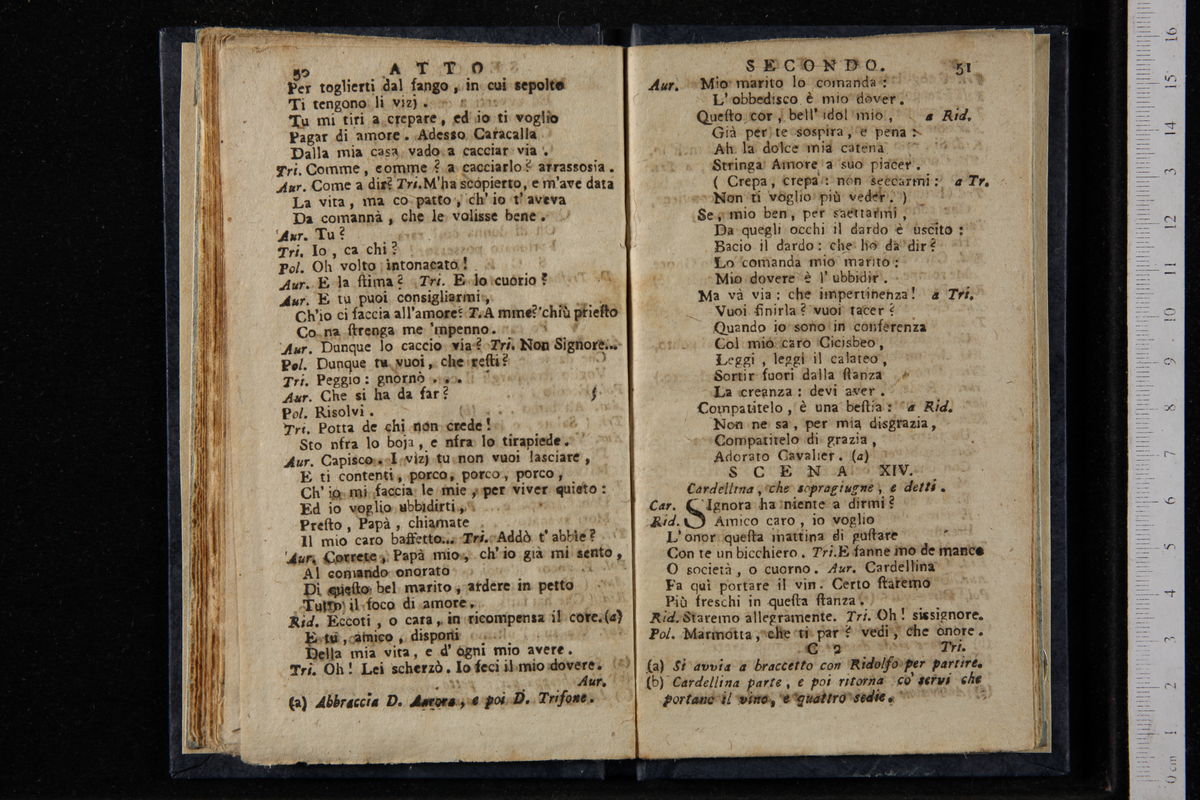 50 ATTO
Per toglierti dal fango, in cui sepolto
Ti tengono li vizj.
Tu mi tiri a crepare, ed io ti voglio
Pagar di amore. Adesso Caracalla
Dalla mia casa vado a cacciar via.
Tri. Comme, comme? a cacciarlo? arrassosia.
Aur. Come a dir? Tri. M'ha scopierto, e m'ave data
La vita, ma co patto, ch'io t'aveva
Da comannà, che le volisse bene.
Aur. Tu?
Tri. Io, ca chi?
Pol. Oh volto intonacato!
Aur. E la ſtima? Tri. E lo cuorio?
Aur. E tu puoi consigliarmi,
Ch'io ci faccia all'amore? T. A mme? chiù prieſto
Co na ſtrenga me 'mpenno.
Aur. Dunque lo caccio via? Tri. Non Signore...
Pol. Dunque tu vuoi, che reſti?
Tri. Peggio: gnornò . . .
Aur. Che si ha da far?
Pol. Risolvi.
Tri. Potta de chi non crede!
Sto nfra lo boja, e nfra lo tirapiede.
Aur. Capisco. I vizj tu non vuoi lasciare,
E ti contenti, porco, porco, porco,
Ch'io mi faccia le mie, per viver quieto:
Ed io voglio ubbidirti,
Preſto, Papà, chiamate
Il mio caro baffetto... Tri. Addò t'abbie?
Aur. Correte, Papà mio, ch'io già mi sento,
Al comando onorato
Di queſto bel marito, ardere in petto
Tutto il foco di amore.
Rid. Eccoti, o cara, in ricompensa il core. (a)
E tu, amico, disponi
Della mia vita, e d'ogni mio avere.
Tri. Oh! Lei scherzò. Io feci il mio dovere.
Aur.
(a) Abbraccia D. Aurora, e poi D. Trifone.
SECONDO. 51
Aur. Mio marito lo comanda:
L'obbedisco è mio dover.
Queſto cor, bell'idol mio, a Rid.
Già per te sospira, e pena:
Ah la dolce mia catena
Stringa Amore a suo piacer.
( Crepa, crepa: non seccarmi: a Tr.
Non ti voglio più veder. )
Se, mio ben, per saettarmi,
Da quegli occhi il dardo è uscito:
Bacio il dardo: che ho da dir?
Lo comanda mio marito:
Mio dovere è l'ubbidir.
Ma và via: che impertinenza! a Tri.
Vuoi finirla? vuoi tacer?
Quando io sono in conferenza
Col mio caro Cicisbeo,
Leggi, leggi il calateo,
Sortir fuori dalla ſtanza
La creanza: devi aver.
Compatitelo, è una beſtia: a Rid.
Non ne sa, per mia disgrazia,
Compatitelo di grazia,
Adorato Cavalier. (a)
SCENA XIV.
Cardellina, che sopragiugne, e detti.
Car. SIgnora ha niente a dirmi?
Rid. Amico caro, io voglio
L'onor queſta mattina di guſtare
Con te un bicchiero. Tri. E fanne mo de manco
O società, o cuorno. Aur. Cardellina
Fa quì portare il vin. Certo ſtaremo
Più freschi in queſta ſtanza.
Rid. Staremo allegramente. Tri. Oh! sissignore.
Pol. Marmotta, che ti par? vedi, che onore.
C 2 Tri.
(a) Si avvia a braccetto con Ridolfo per partire.
(b) Cardellina parte, e poi ritorna co' servi che
portano il vino, e quattro sedie.
0 cm 1 2 3 4 5 6 7 8 9 10 11 12 13 14 15 16